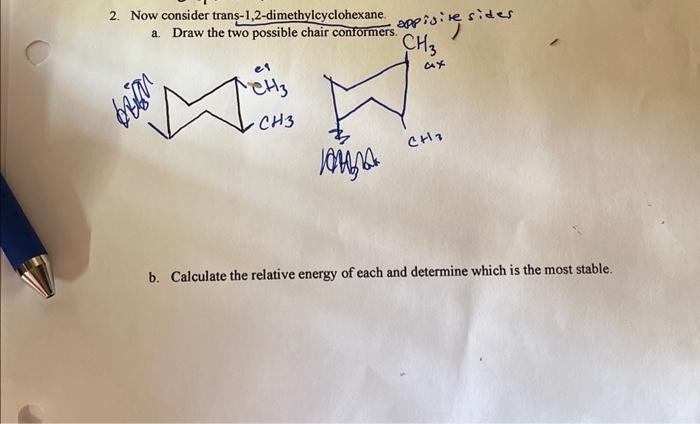 2. Now consider trans-1,2-dimethylcyclohexane. oppisite sides
a. Draw the two possible chair conformers.
CH3
ax
CH3
CH3
CH3
b. Calculate the relative energy of each and determine which is the most stable.